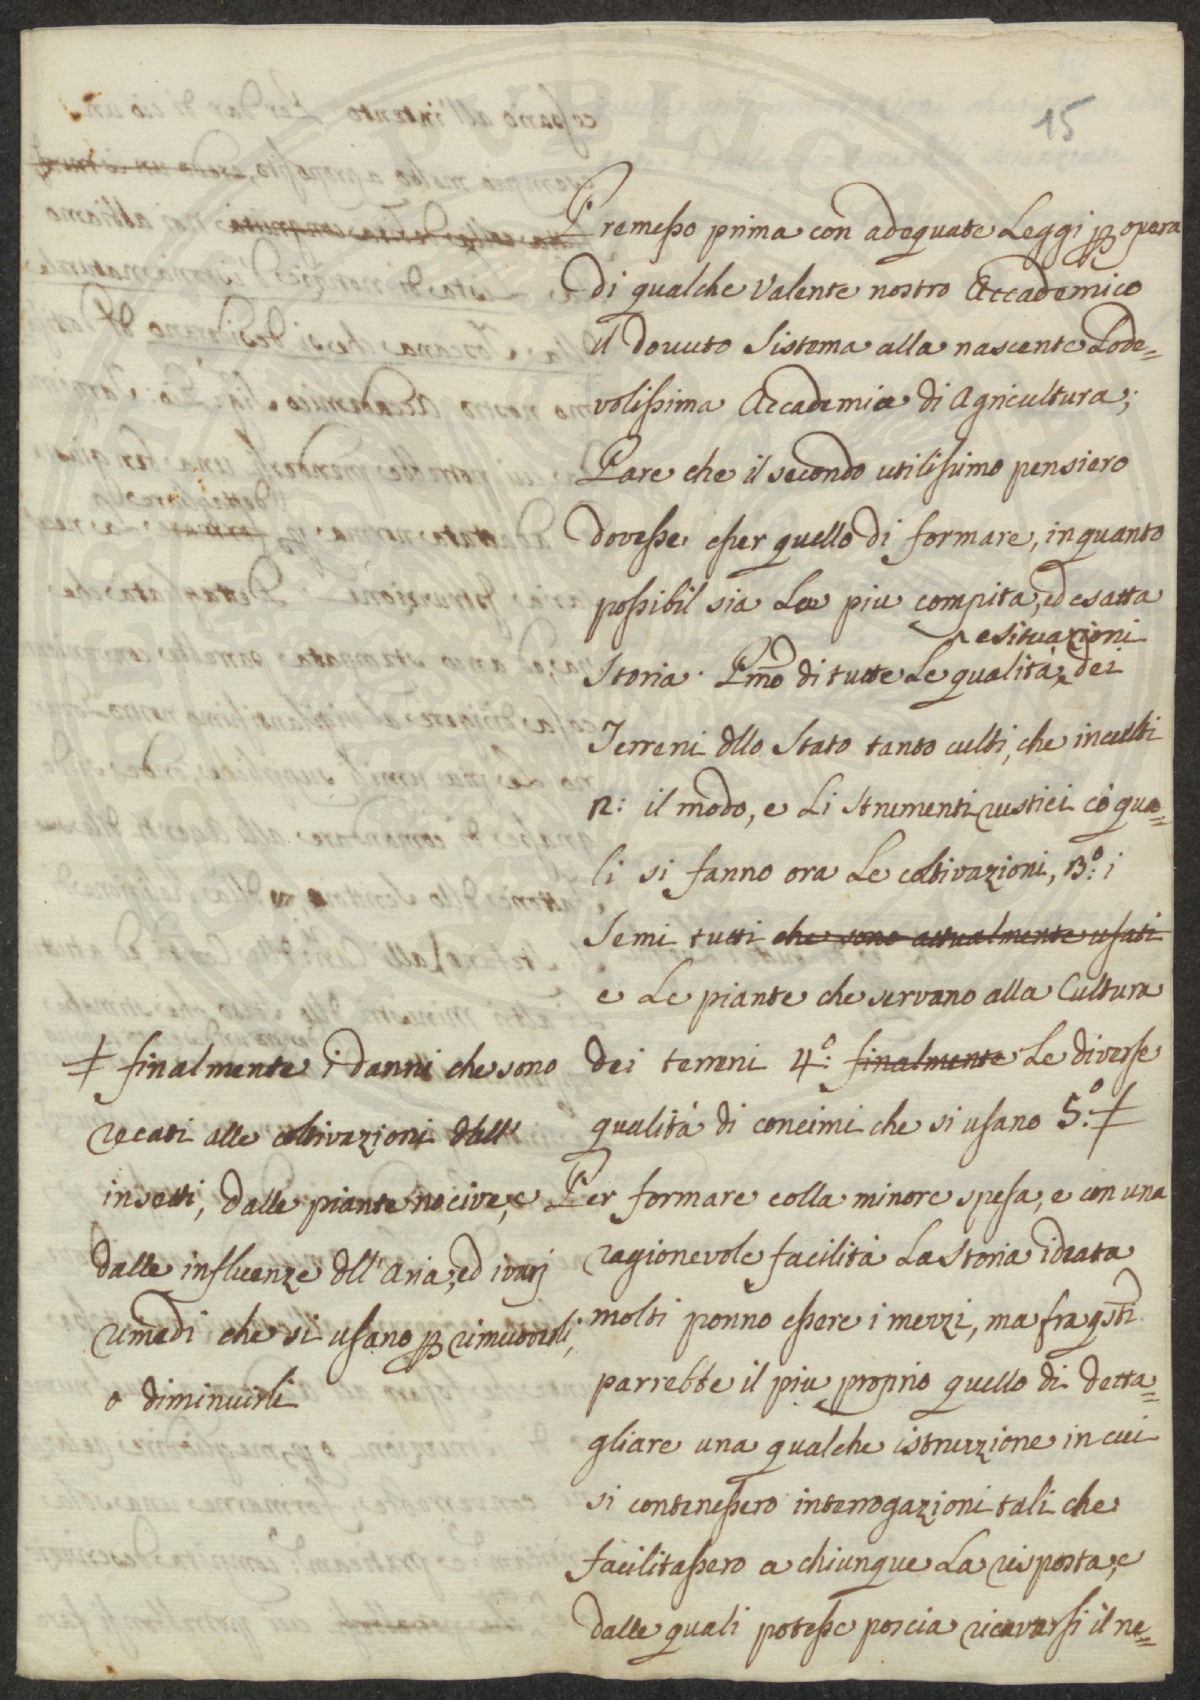 15
Premesso prima con adequate Leggi p opera
di qualche Valente nostro Accademico
il dovuto Sistema alla nascente Lode=
volissima Accademia di Agricultura;
Pare che il secondo utilissimo pensiero
dovesse esser quello di formare, in quanto
possibil sia La piu compita, ed esatta
e situazioni
Storia. Pmo di tutte Le qualità, dei
Terreni dllo Stato tanto culti, che inculti
2: il modo, e Li Strumenti rustici cò qua=
li si fanno ora Le coltivazioni, 3.º: i
Semi tutti che sono attualmente usati
e Le piante che servano alla Cultura
dei terreni 4.º: finalmente Le diverse
qualità di concimi che si usano 5.º: ‡
Per formare colla minore spesa, e con una
ragionevole facilità La Storia ideata
molti ponno essere i mezzi, ma fra qsti
parrebbe il piu proprio quello di detta=
gliare una qualche istruzzione in cui
si contenessero interrogazioni tali che
facilitassero a chiunque La risposta, e
dalle quali potesse poscia ricavarsi il ne=
‡ finalmente i danni che sono
recati alle coltivazioni dall'
insetti, dalle piante nocive, e
dalle influenze dll' Aria, ed i varj
rimedi che si usano p rimuoverli,
o diminuirli